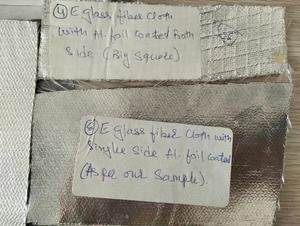 ④ E glass fiber cloth
with Al. foil coated Both
side (Big Square)
⑥ E glass fiber cloth with
Single side Al. foil coated
(As per our sample).